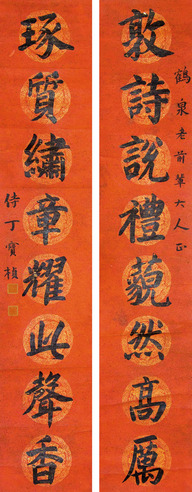 敦詩說禮藐然高厲
鶴泉老前輩大人正
琢質繡章耀此聲香
侍丁寶楨